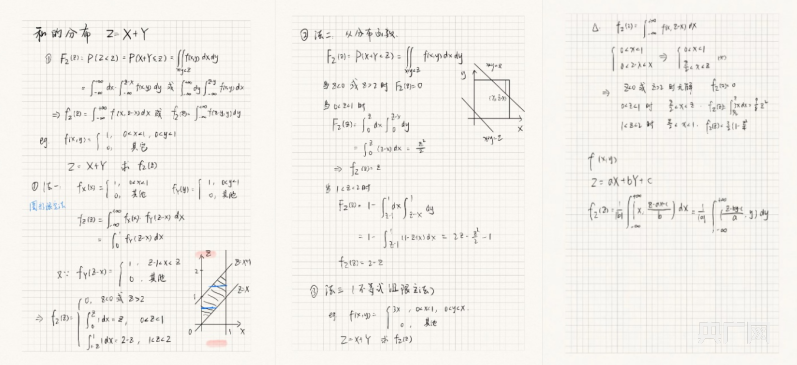 和的分布 Z=X+Y
① F_Z(z)=P(Z≤z)=P(X+Y≤z)=∬_{x+y≤z} f(x,y)dxdy
=∫_{-∞}^{+∞}dx∫_{-∞}^{z-x}f(x,y)dy 或 ∫_{-∞}^{+∞}dy∫_{-∞}^{z-y}f(x,y)dx
⇒ f_Z(z)=∫_{-∞}^{+∞}f(x,z-x)dx 或 f_Z(z)=∫_{-∞}^{+∞}f(z-y,y)dy
eg. f(x,y)={1, 0<x<1, 0<y<1
0, 其它
Z=X+Y 求 f_Z(z)
① 法一 f_X(x)={1, 0<x<1 f_Y(y)={1, 0<y<1
0, 其他 0, 其他
f_Z(z)=∫_{-∞}^{+∞}f_X(x)·f_Y(z-x)dx
=∫_0^1 f_Y(z-x)dx
又∵ f_Y(z-x)={1, z-1<x<z
0, 其他
⇒ f_Z(z)={0, z<0 或 z>2
∫_0^z 1dx=z, 0<z<1
∫_{z-1}^1 1dx=2-z, 1<z<2
z
2
1
0
1
x
z=x+1
z=x
② 法二 从分布函数
F_Z(z)=P(X+Y≤z)=∬_{x+y≤z} f(x,y)dxdy
当 z<0 或 z>2 时 F_Z(z)=0
当 0<z<1 时
F_Z(z)=∫_0^z dx∫_0^{z-x}dy
=∫_0^z (z-x)dx=z²/2
⇒ f_Z(z)=z
当 1<z<2 时
F_Z(z)=1-∫_{z-1}^1 dx∫_{z-x}^1 dy
=1-∫_{z-1}^1 (1-z+x)dx=2z-z²/2-1
f_Z(z)=2-z
y
x
x+y=z
③ 法三 (不等式组限定法)
eg. f(x,y)={3x, 0<x<1, 0<y<x
0, 其他
Z=X+Y 求 f_Z(z)
f_Z(z)=∫_{-∞}^{+∞}f(x,z-x)dx
{0<x<1 ⇒ {0<x<1
0<z-x<x z/2<x<z
⇒ z<0 或 z>2 时无解 f_Z(z)=0
0<z<1 时 z/2<x<z f_Z(z)=∫_{z/2}^z 3xdx=9/8z²
1<z<2 时 z/2<x<1
f(x,y)
Z=aX+bY+c